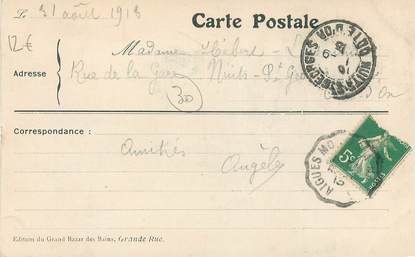 Le 31 août 1913
Carte Postale
12€
Madame Hébert
Adresse
Rue de la Gare Nuits-St
30
Correspondance :
Amitiés
Angèle
AIGUES MO
5c
Edition du Grand Bazar des Bains, Grande Rue.